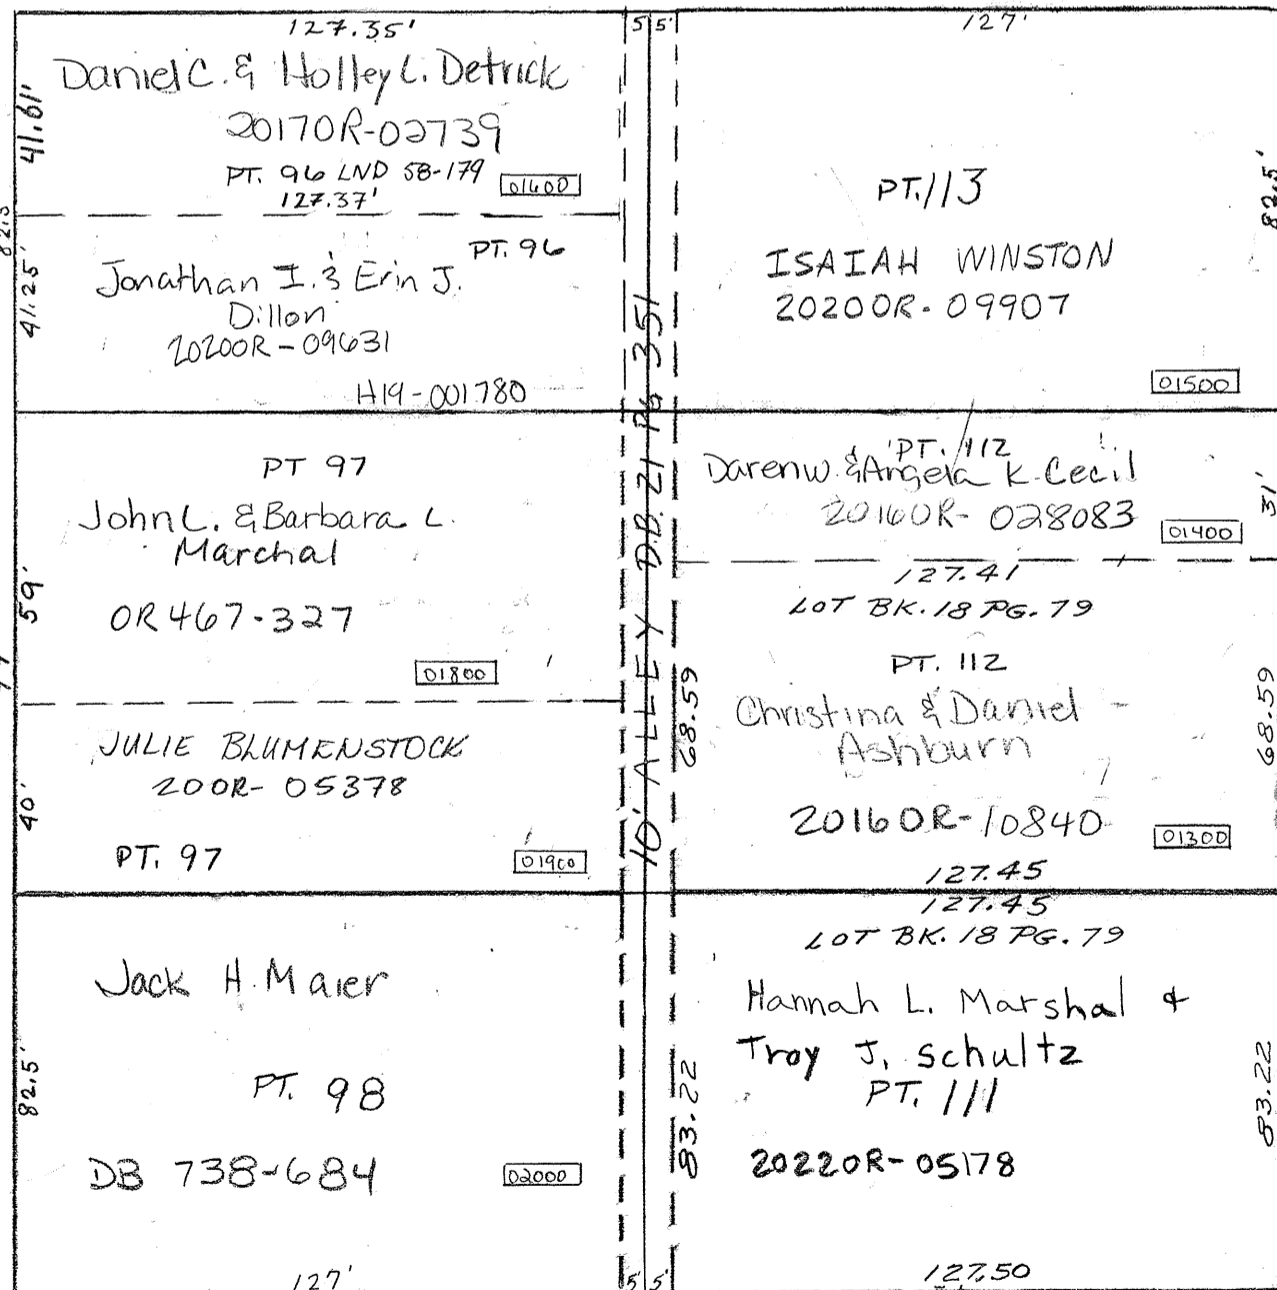 127.35'
Daniel C. & Holley L. Detrick
20170R-02739
PT. 96 LND 58-179
01600
127.37'
41.61'
82.5
PT. 96
Jonathan I. & Erin J.
Dillon
20200R-09631
H19-001780
41.25'
PT 97
John L. & Barbara L.
Marchal
OR 467-327
01800
59'
JULIE BLUMENSTOCK
200R-05378
PT. 97
01900
40'
Jack H. Maier
PT. 98
DB 738-684
02000
82.5'
127'
5' 5'
10' ALLEY D.B. 21 PG 351
5' 5'
127'
PT. 113
ISAIAH WINSTON
20200R-09907
01500
82.5'
PT. 112
Daren W. & Angela K. Cecil
20160R-028083
01400
31'
127.41
LOT BK. 18 PG. 79
PT. 112
Christina & Daniel
Ashburn
20160R-10840
01300
68.59
68.59
127.45
127.45
LOT BK. 18 PG. 79
Hannah L. Marshal &
Troy J. Schultz
PT. 111
20220R-05178
83.22
83.22
127.50